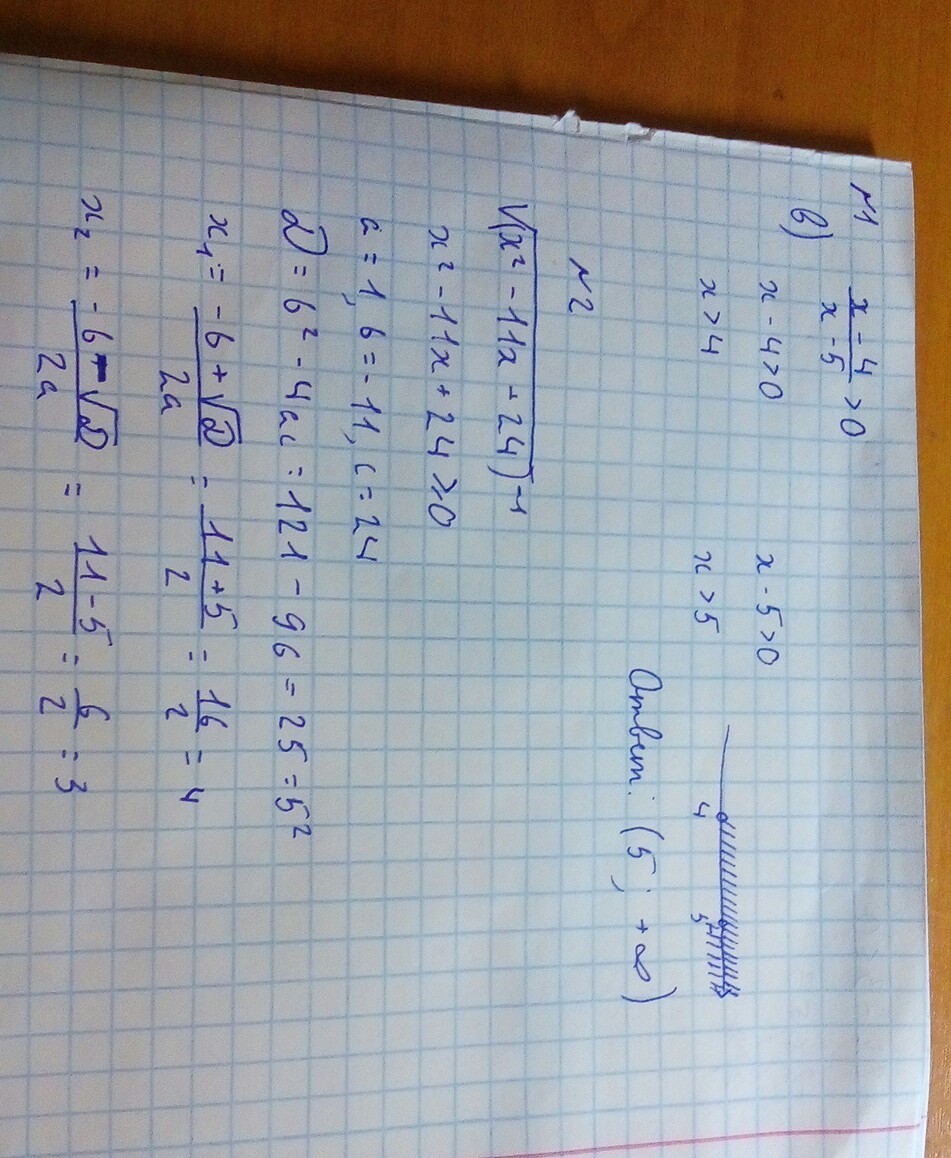 N1 (x - 4)/(x - 5) > 0
б)
x - 4 > 0    x - 5 > 0
x > 4    x > 5
4 5
Ответ: (5; +∞)
N2
√(x² - 11x + 24)⁻¹
x² - 11x + 24 ≥ 0
a = 1, b = -11, c = 24
D = b² - 4ac = 121 - 96 = 25 = 5²
x₁ = (-b + √D)/2a = (11 + 5)/2 = 16/2 = 4
x₂ = (-b - √D)/2a = (11 - 5)/2 = 6/2 = 3